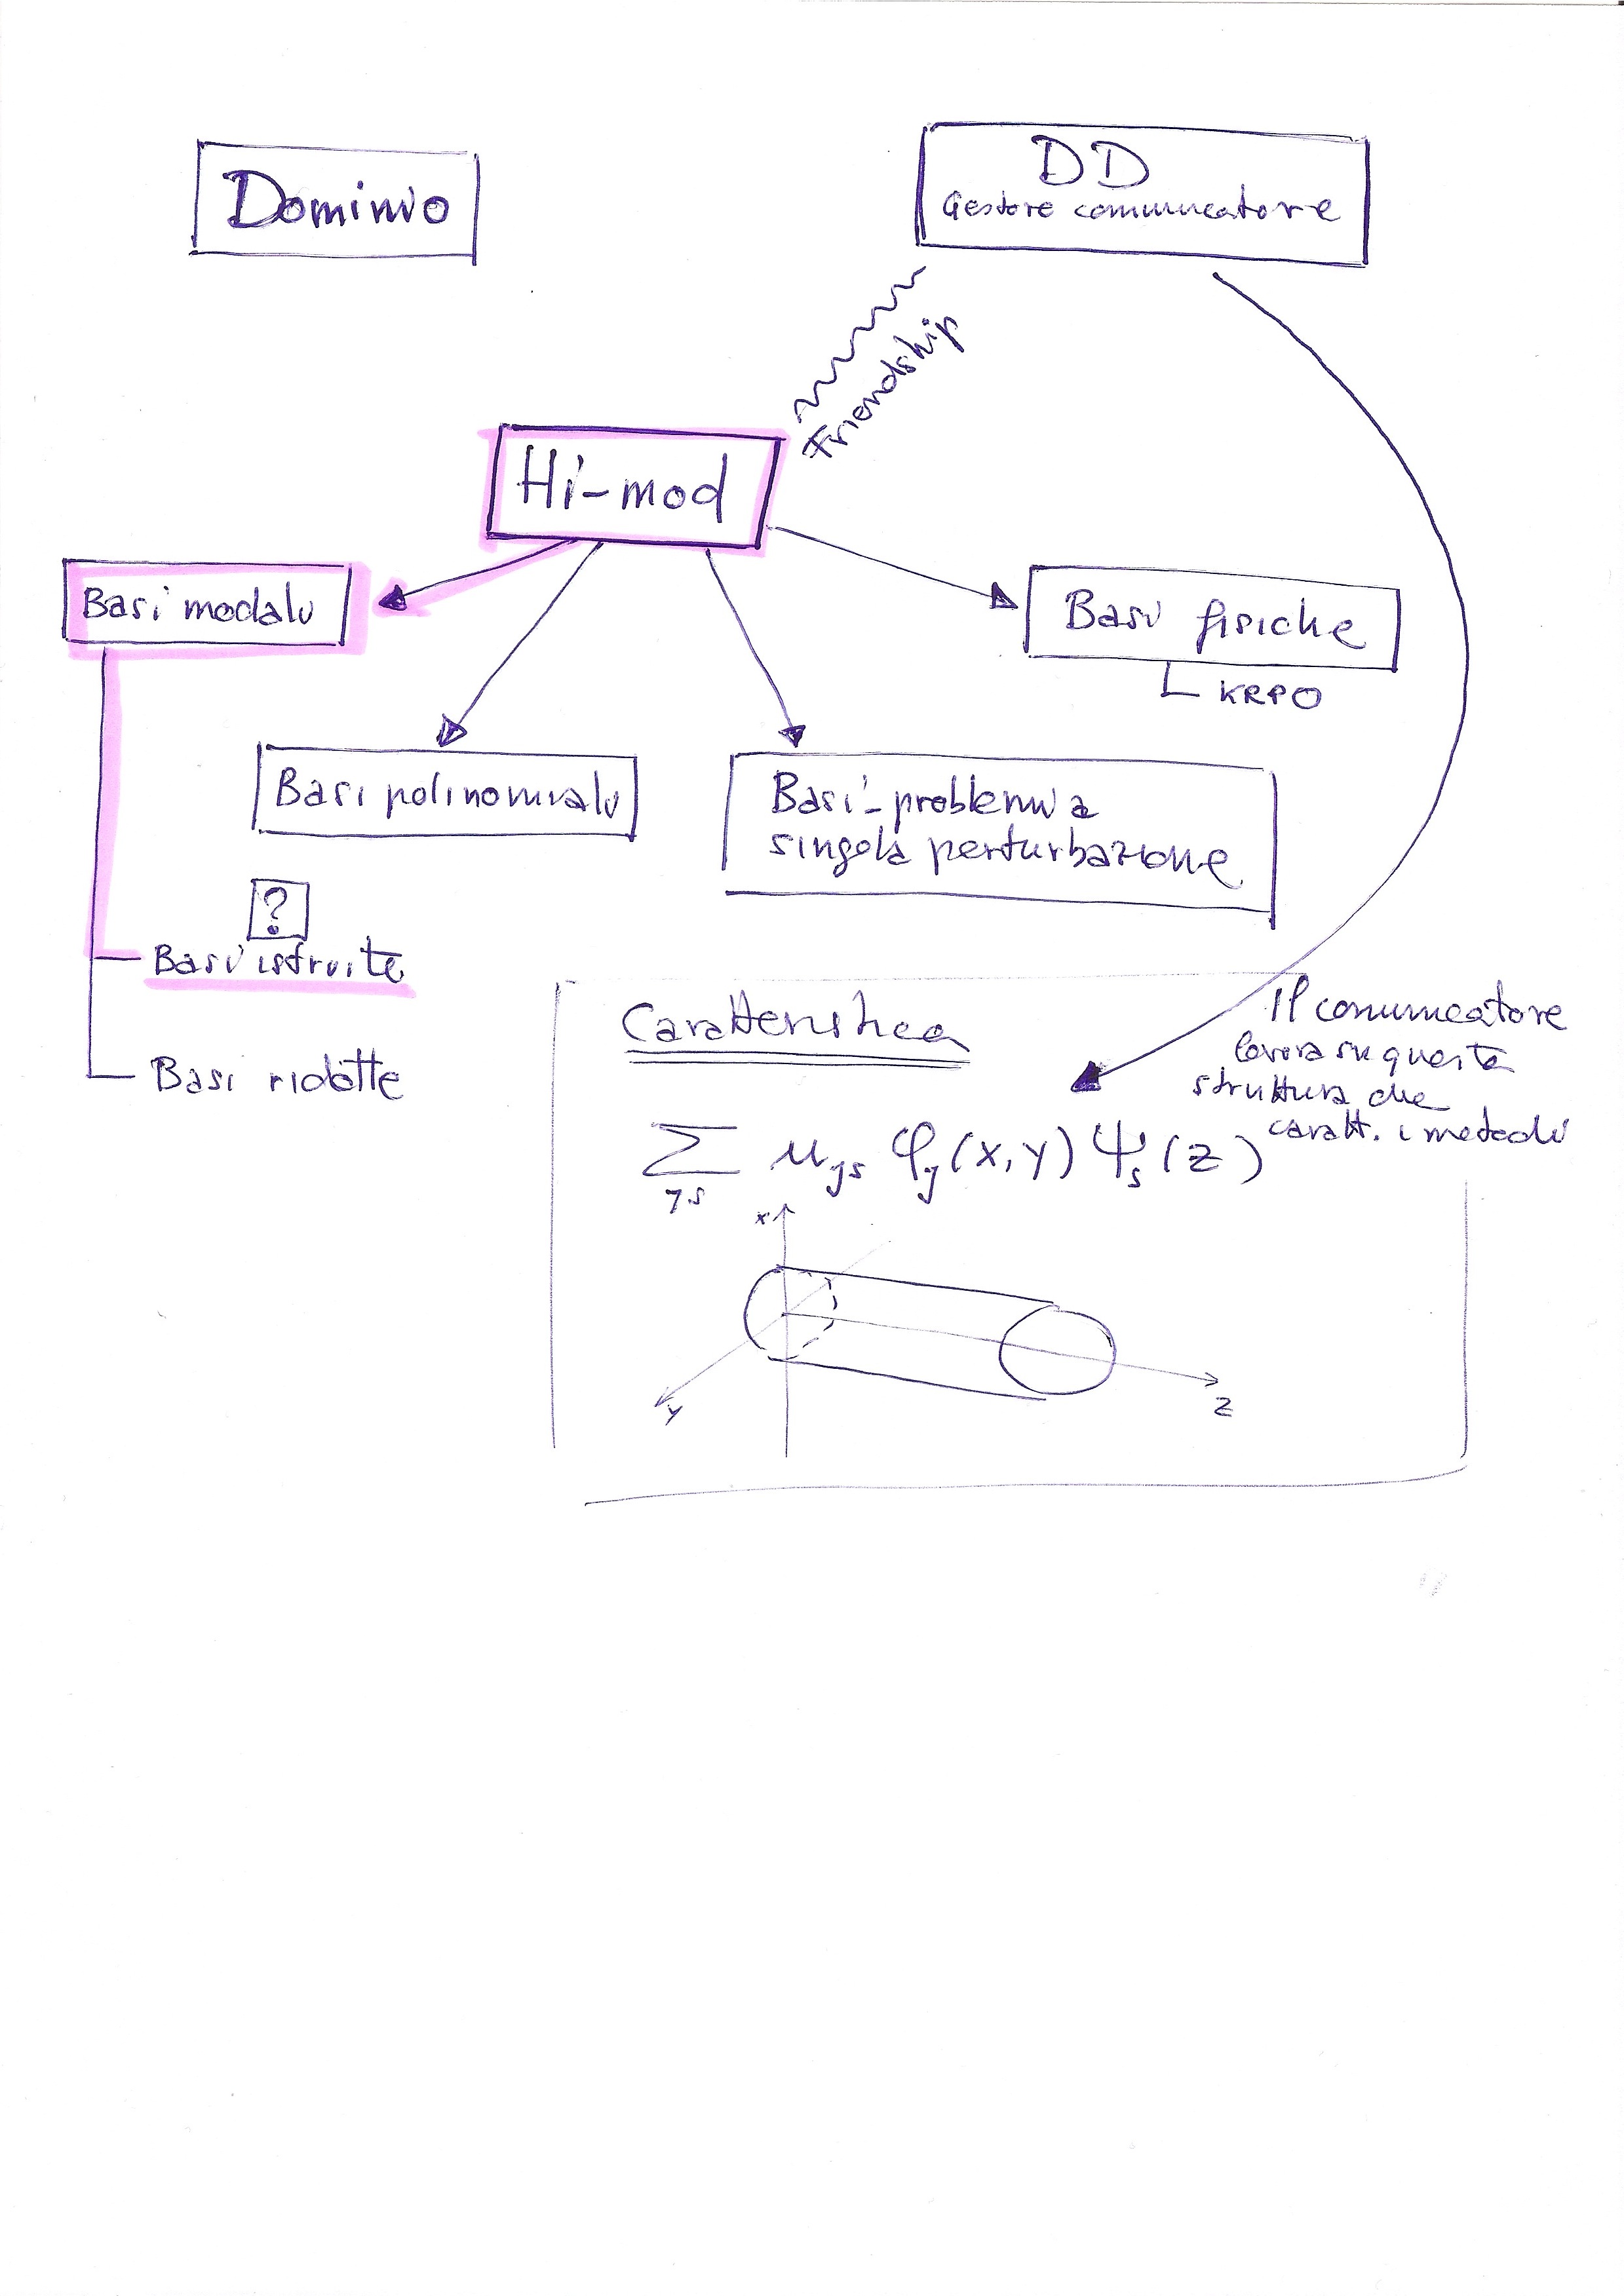 Dominio
DD
Gestore comunicatore
Friendship
Hi-mod
Basi modali
Basi fisiche
KRPO
Basi polinomiali
Basi-problemi a
singola perturbazione
?
Basi istruite
Basi ridotte
Caratteristica
Il comunicatore
lavora su questa
struttura che
caratt. i metodi
∑ u φ (x,y) ψs(z)
x
y
z